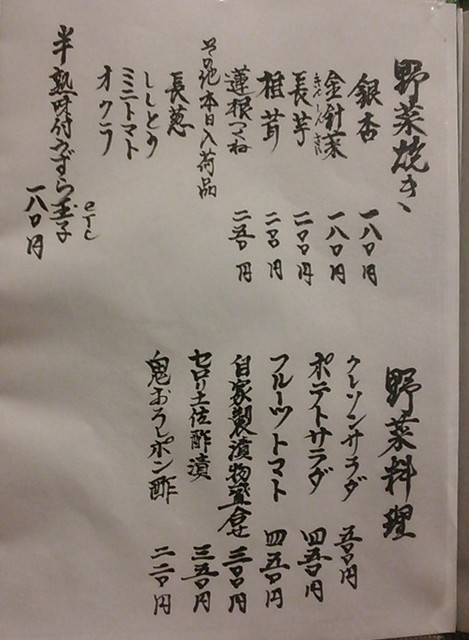 野菜焼き
銀杏 一八〇円
金針菜 一八〇円
きんしんさい
長芋 二〇〇円
椎茸 二〇〇円
蓮根つくね 二五〇円
その他本日入荷品
長葱
ししとう
ミニトマト
オクラ
etc
半熟味付うずら玉子 一八〇円
野菜料理
クレソンサラダ 五〇〇円
ポテトサラダ 四五〇円
フルーツトマト 四五〇円
自家製漬物盛合せ 三〇〇円
セロリ土佐酢漬 三五〇円
鬼おろしポン酢 二二〇円